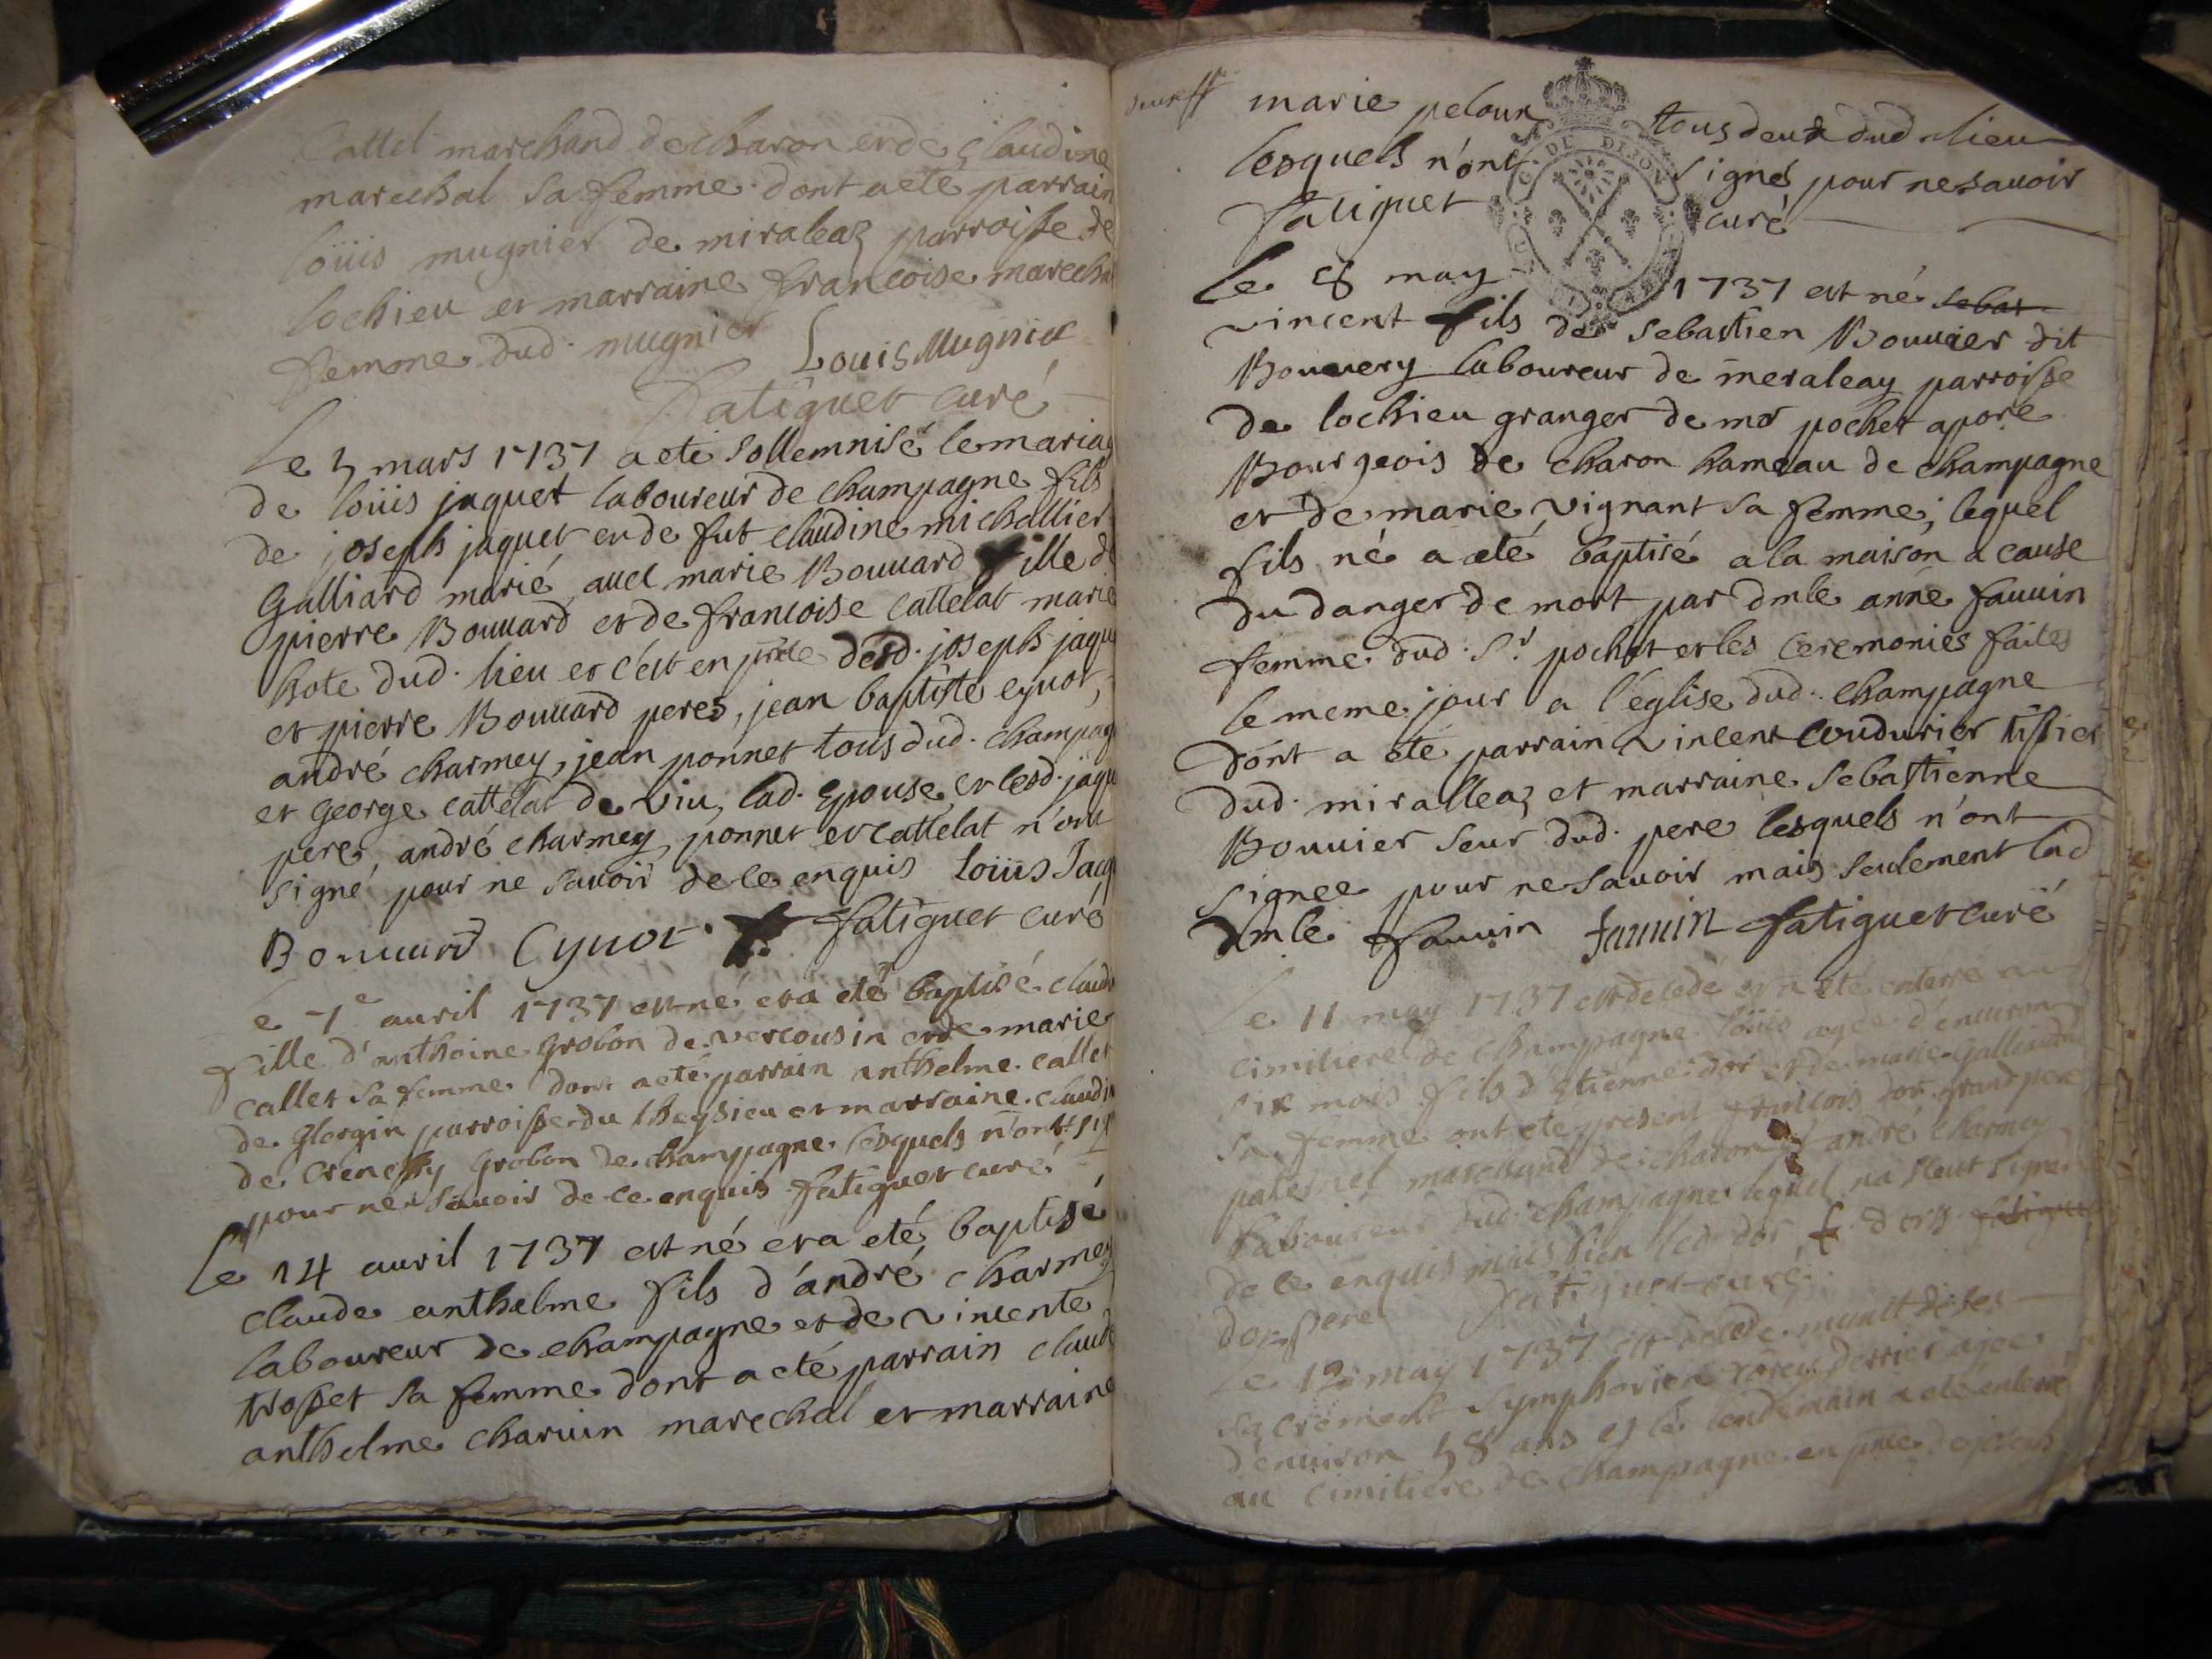 Cattel marchand de charon et de Claudine
marechal sa femme dont a eté parrain
loüis mugnier de miraleaz parroisse de
lochieu et marraine francoise marecha
femme dud. mugnier
Louis Mugnier
fatiguet curé
Le 5 mars 1737 a eté sollemnisé le mariag
de loüis jaquet laboureur de champagne fils
de joseph jaquet et de fut claudine michallier
Galliard marié avec marie Bouvard fille de
pierre Bouvard et de francoise cattelat marie
hote dud. lieu et c'est en pnce desd. joseph jaqu
et pierre Bouvard peres, jean baptiste cynot,
andré charmey, jean ponnet tous dud. champag
et george cattelat de viu, lad. Epouse, et lesd. jaqu
pere, andré charmey ponnet et cattelat n'ont
signé pour ne savoir de ce enquis Loüis Jacq
Bouvard Cynot fatiguet curé
Le 7e avril 1737 est né et a eté baptisé claud
fille d'anthoine Grobon de vercousin et de marie
callet sa femme dont a eté parrain anthelme callet
de Glargin parroisse du theysieu et marraine claudi
de Crenchy Grobon de champagne lesquels n'ont sig
pour ne savoir de ce enquis fatiguet curé
Le 14 avril 1737 est né et a eté baptisé
claude anthelme fils d'andré charmey
laboureur de champagne et de vincente
trosset sa femme dont a eté parrain claude
anthelme charvin marechal et marraine
marie peloux tous deux dud. lieu
lesquels n'ont signés pour ne savoir
fatiguet curé
G. DE DIJON
Le 8 may 1737 est né sebas
vincent fils de sebastien Bouvier dit
Bouvery laboureur de meraleay parroisse
de lochieu granger de mr pochet apore
Bourgeois de charon hameau de champagne
et de marie vignant sa femme, lequel
fils né a eté baptisé a la maison a cause
du danger de mort par dmle anne fauvin
femme dud. Sr pochet et les ceremonies faites
le meme jour a l'église dud. champagne
dont a eté parrain vincent coudurier tissier
dud. miralleaz et marraine sebastienne
Bouvier seur dud. pere lesquels n'ont
signee pour ne savoir mais seulement lad
dmle fauvin fauvin fatiguet curé
Le 11 may 1737 est decedé et a eté enterré au
cimitiere de champagne loüis agee d'environ
six mois fils d'Etienne dor et de marie Galliard
sa femme ont eté present francois dor grand pere
paternel marchand de charon et andré charmey
laboureur dud. champagne lequel na sceut signer
de ce enquis mais bien led. dor f. dorz fatiguet
dor pere fatiguet curé
Le 12 may 1737 est decede munit de ses
sacrement Symphorien derrier agee
d'environ 58 ans et le lendemain a eté enterré
au cimitiere de champagne en pnce de